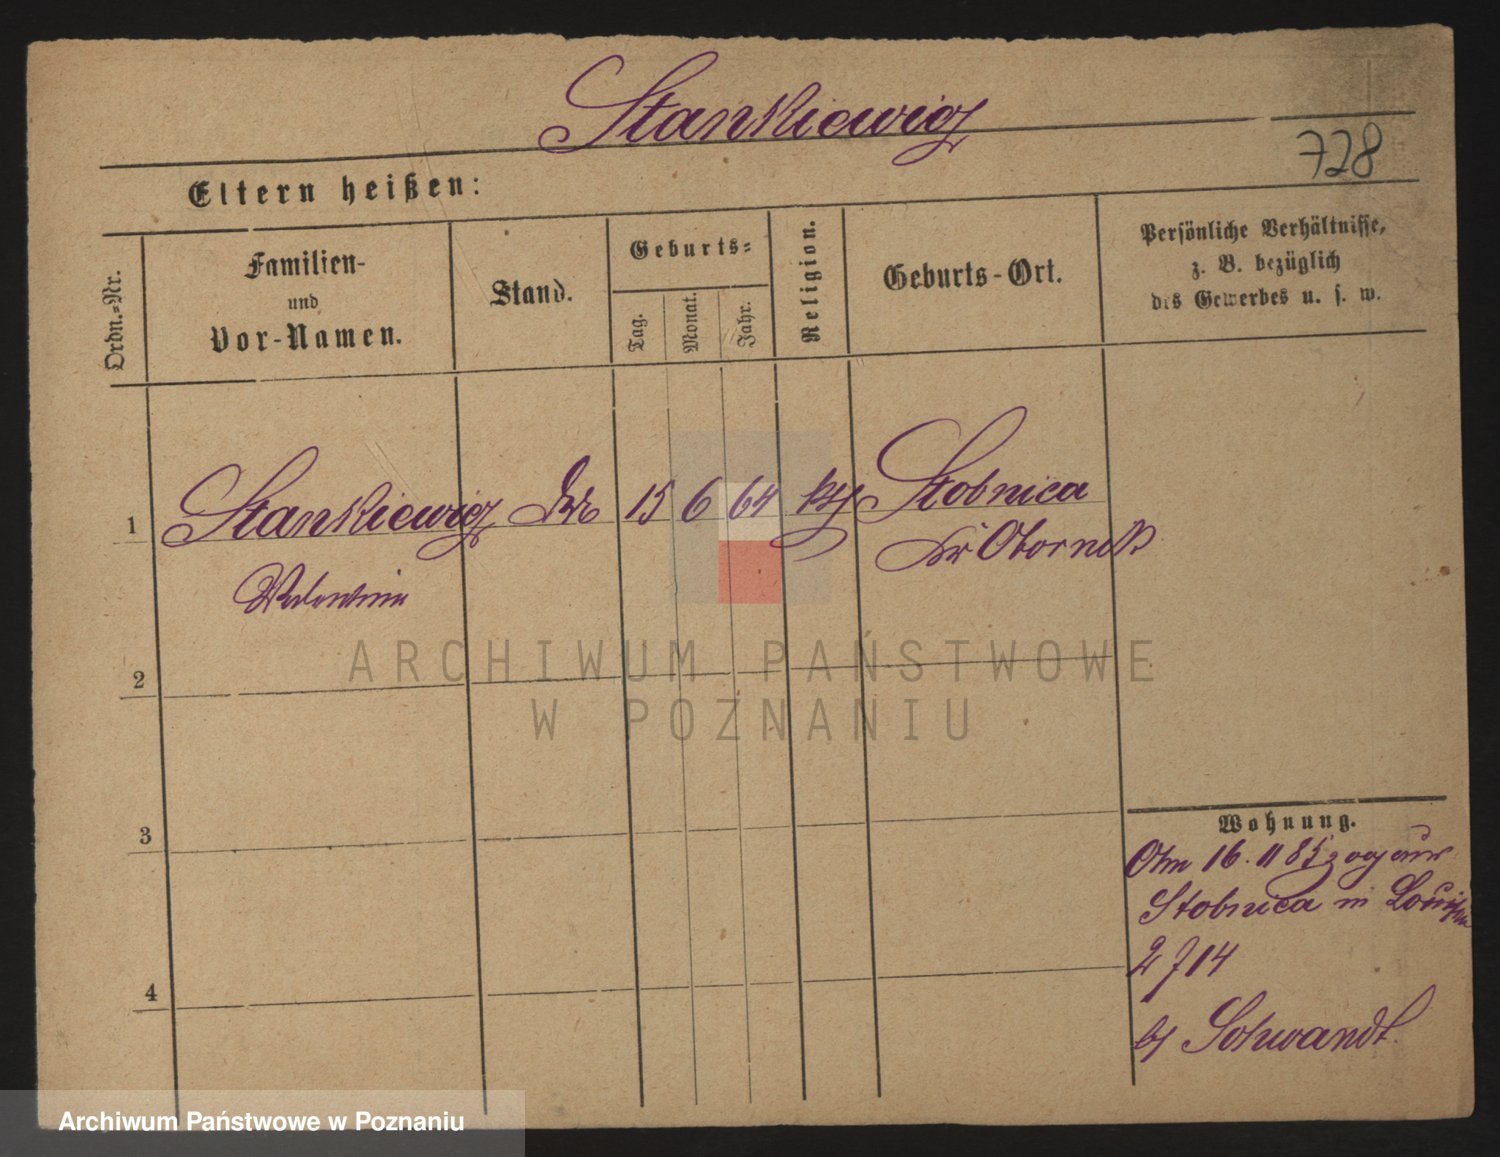 Stankiewicz
728
Eltern heißen:
Ordn.-Nr.
Familien-
und
Vor-Namen.
Stand.
Geburts-
Tag.
Monat.
Jahr.
Religion.
Geburts-Ort.
Persönliche Verhältnisse,
z. B. bezüglich
des Gewerbes u. s. w.
1 Stankiewicz 15 6 64 Stobnica
Kr Obornik
2
3
4
Wohnung.
Am 16. 11 85 zog aus
Stobnica in
2 14
Schwandt
ARCHIWUM PAŃSTWOWE
W POZNANIU
Archiwum Państwowe w Poznaniu